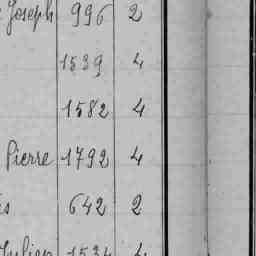 Joseph 996 2
1539 4
1582 4
Pierre 1792 4
642 2
Julien 1534 4